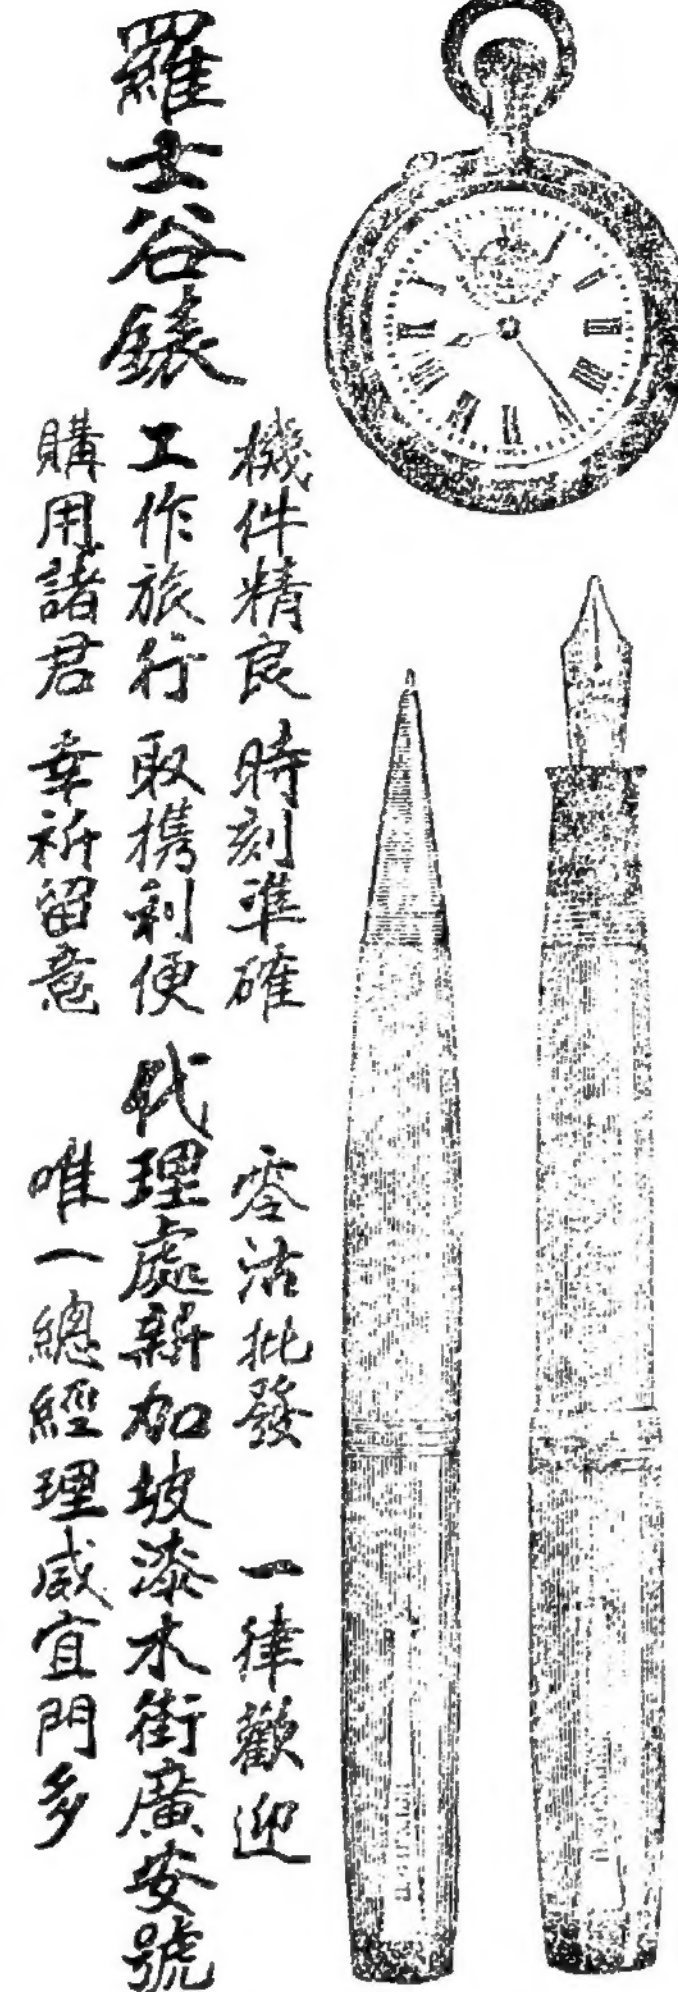 羅士谷錶
機件精良 時刻準確
工作旅行 取携利便
購用諸君 幸祈留意
零沽批發 一律歡迎
代理處新加坡漆水街廣安號
唯一總經理威宜門多